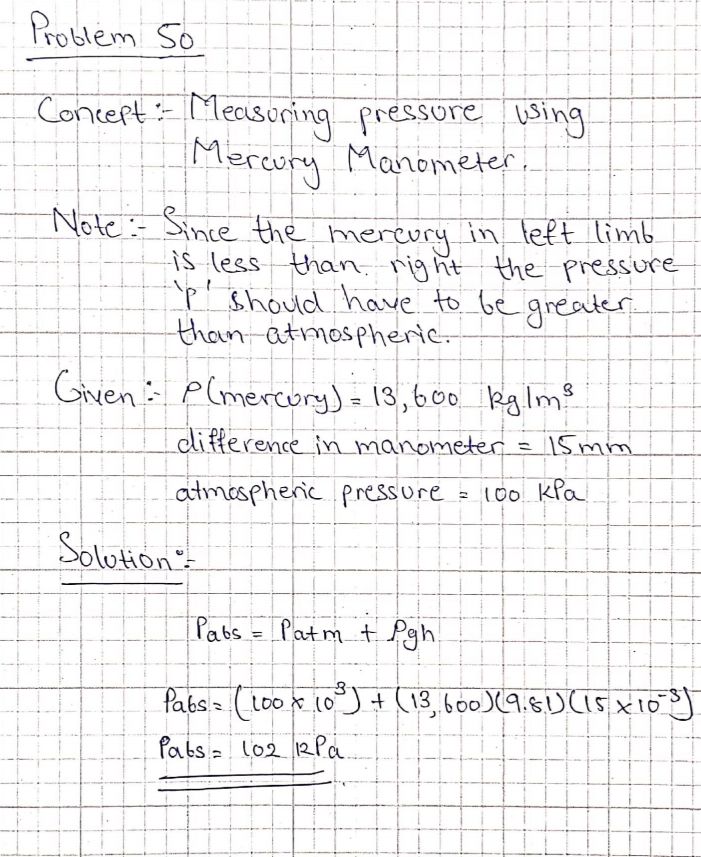 Problem 50
Concept :- Measuring pressure using
Mercury Manometer.
Note :- Since the mercury in left limb
is less than right the pressure
'p' should have to be greater
than atmospheric.
Given :- ρ(mercury) = 13,600 kg/m³
difference in manometer = 15mm
atmospheric pressure = 100 kPa
Solution :-
Pabs = Patm + ρgh
Pabs = (100 × 10³) + (13,600)(9.81)(15 × 10⁻³)
Pabs = 102 kPa